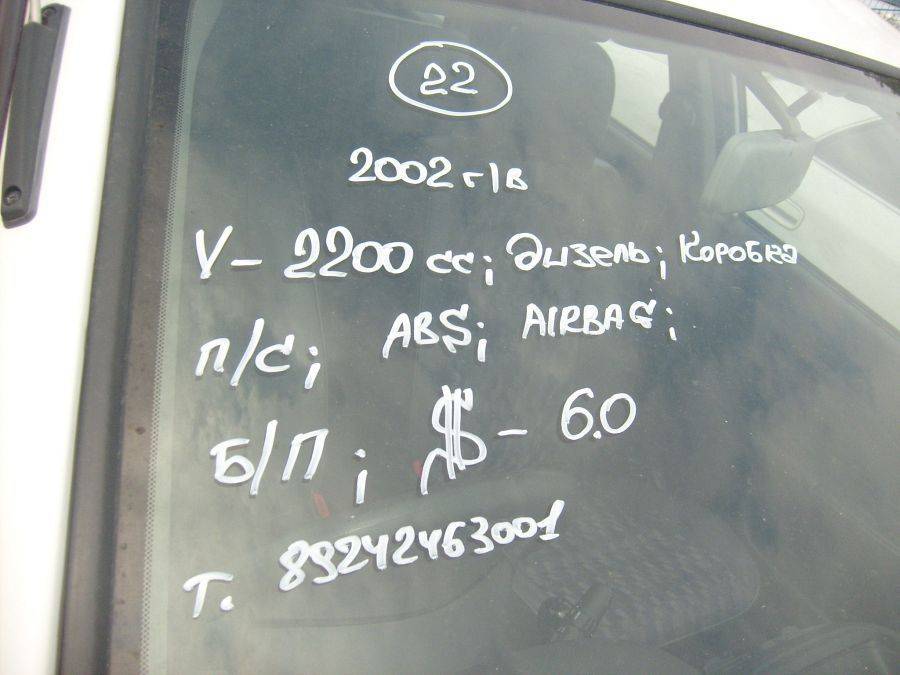 22
2002 г/в
V - 2200 сс; Дизель; Коробка
п/с; ABS; AIRBAG;
Б/П; $ - 6.0
Т. 89242463001